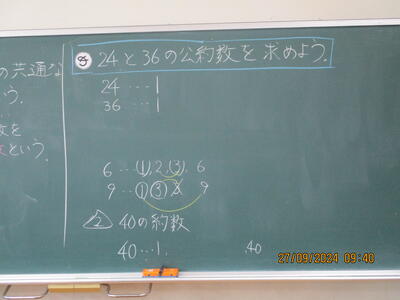 の共通な
う。
数を
という。
24と36の公約数を求めよう。
24…1
36…1
6…①,2,③,6
9…① ③ 9
40の約数
40…1, ,40
27/09/2024 09:40